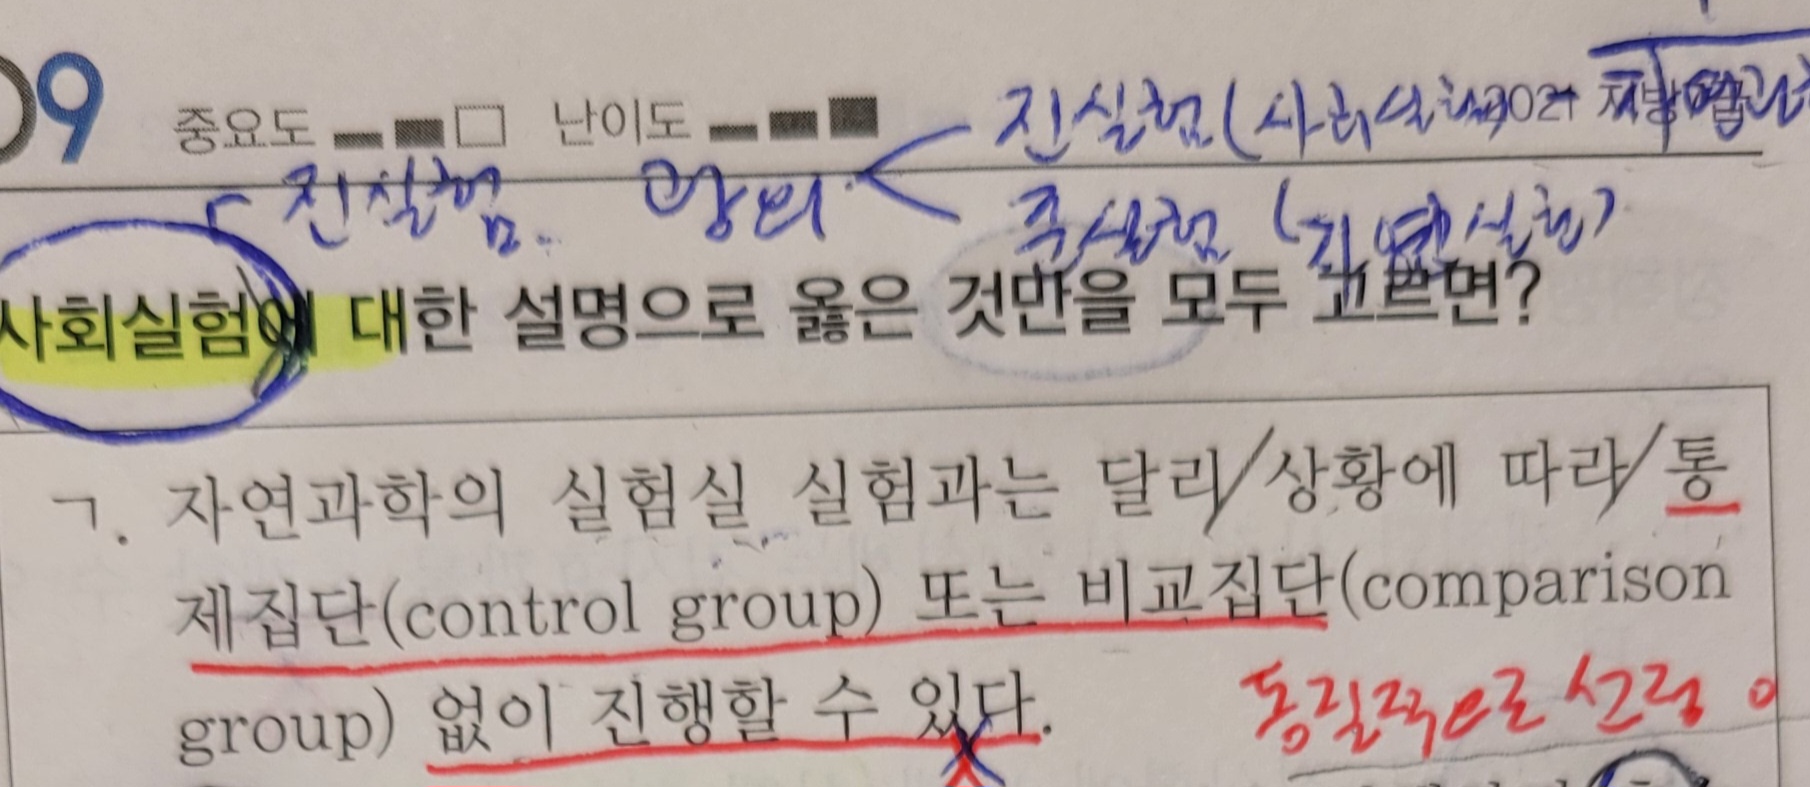 09 중요도 난이도 진실험(사회실험 2021
진실험. 광의 준실험 (자연실험)
사회실험에 대한 설명으로 옳은 것만을 모두 고르면?
ㄱ. 자연과학의 실험실 실험과는 달리/상황에 따라/통
제집단(control group) 또는 비교집단(comparison
group) 없이 진행할 수 있다. 동질적으로 선정